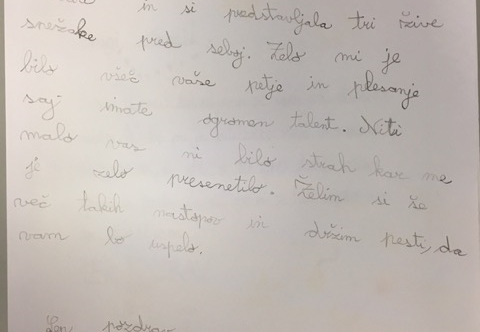 in si predstavljala tri žive
snežake pred seboj. Zelo mi je
bilo všeč vaše petje in plesanje
saj imate ogromen talent. Niti
malo vas ni bilo strah kar me
je zelo presenetilo. Želim si še
več takih nastopov in držim pesti, da
vam bo uspelo.
Lep pozdrav